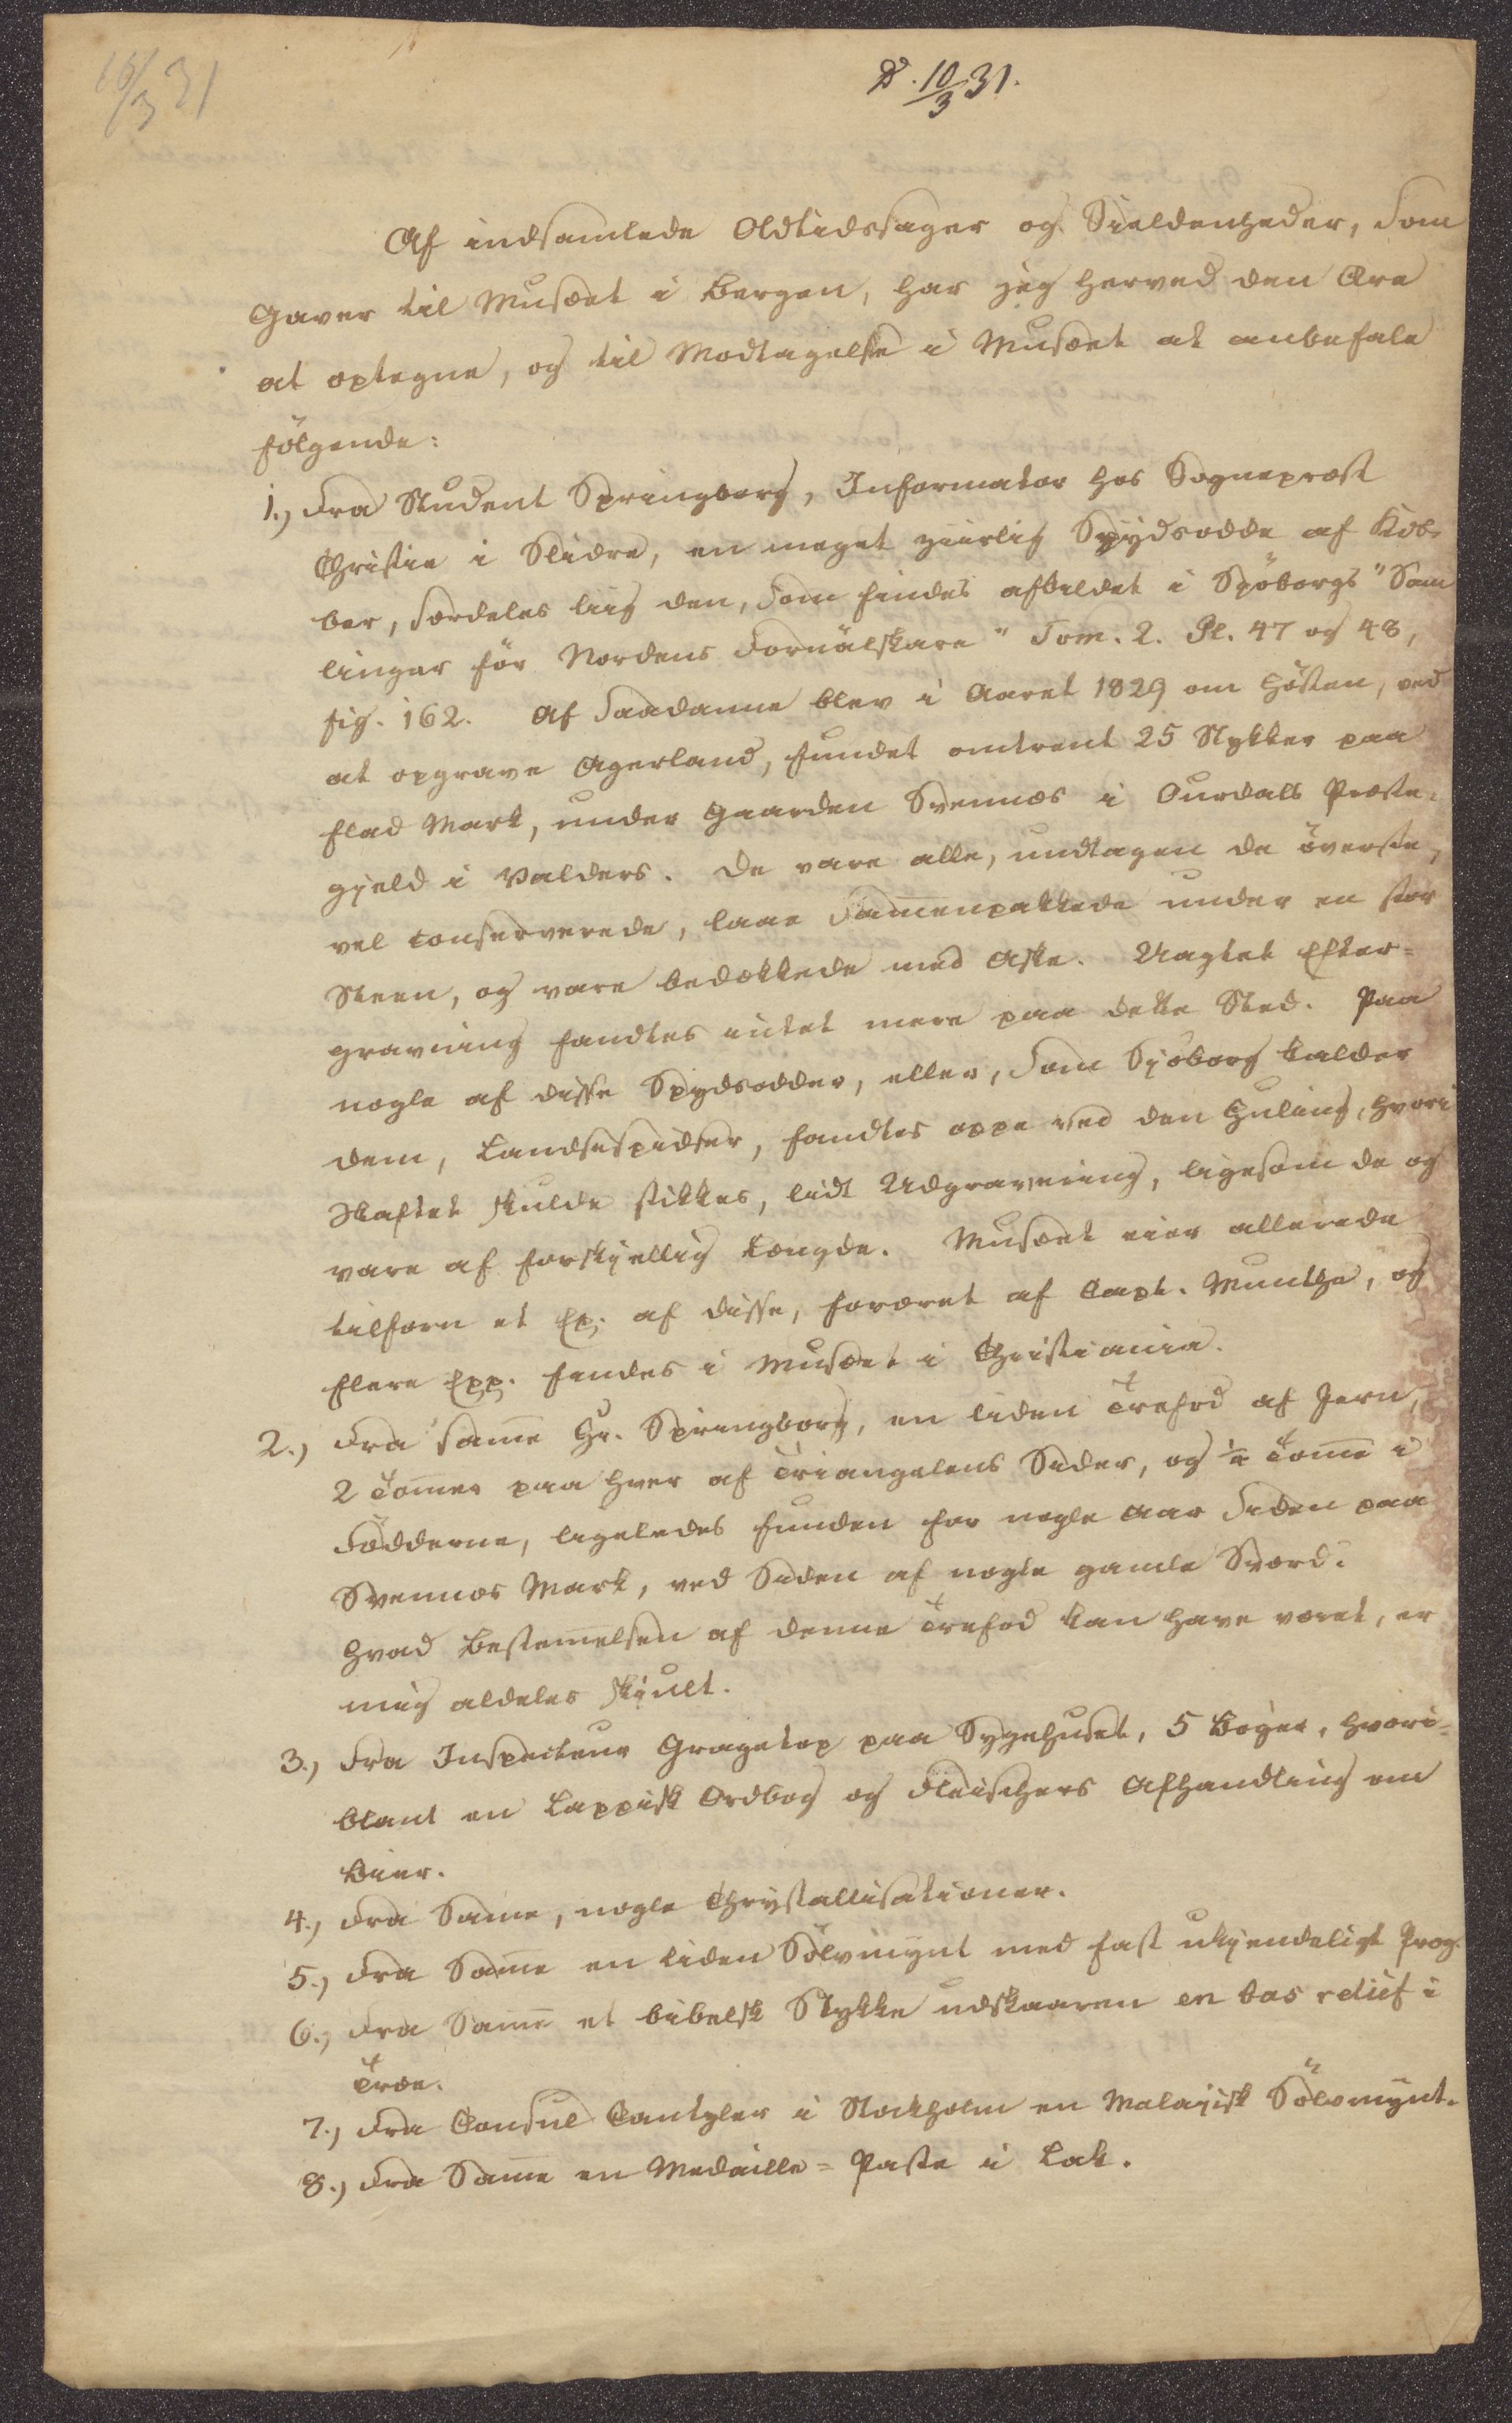 16/3 31
D. 10/3 31.
Af indsamlede Oldtidssager og Sieldenheder, som
Gaver til Musæet i Bergen, har jeg herved den Ære
at optegne, og til Modtagelse i Musæet at anbefale
følgende:
1.) Fra Student Springborg, Informator hos Sognepræst
Christie i Slidre, en meget ziirlig Spydsodde af Kob-
ber, særdeles liig den, som findes afbildet i Sjöborgs "Sam
lingar för Nordens Fornälskare" Tom. 2. Pl. 47 og 48,
fig. 162. Af saadanne blev i Aaret 1829 om Høsten, ved
at opgrave Agerland, fundet omtrent 25 Stykker paa
flad Mark, under Gaarden Svennæs i Ourdals Præste-
gjeld i Valders. De vare alle, undtagen de øverste,
vel conserverede, laae sam̅enpakkede under en stor
Steen, og vare bedækkede med Aske. Uagtet Efter-
gravning fandtes intet mere paa dette Sted. Paa
nogle af disse Spydsodder, eller, som Sjöborg kalder
dem, Landsespidser, fandtes oppe ved den Huling, hvori
Skaftet skulde stikkes, lidt Udgravning, ligesom de og
vare af forskjellig Længde. Musæet eier allerede
tilforn et Ex. af disse, foræret af Capt. Munthe, og
flere Expp. findes i Musæet i Christiania.
2.) Fra sam̅e Hr. Springborg, en liden Trefod af Jern,
2 Tom̅er paa hver af Triangelens Sider, og ½ Tom̅e i
Fødderne, ligeledes funden for nogle Aar siden paa
Svennæs Mark, ved Siden af nogle gamle Sværd.
Hvad Bestem̅elsen af denne Trefod kan have været, er
mig aldeles skjult.
3.) Fra Inspecteur Gragetop paa Sygehuset, 5 Bøger, hvori-
blant en Lappisk Ordbog og Fleischers Afhandling om
Bier.
4.) Fra Sam̅e, nogle Chrystallisationer.
5.) Fra Sam̅e en liden Sølvmynt med fast ukjendeligt Præg.
6.) Fra Sam̅e et bibelsk Stykke udskaaren en bas relief i
Træe.
7.) Fra Consul Cantzler i Stockholm en Malajisk Sølvmynt.
8.) Fra Sam̅e en Medaille-Paste i Lak.